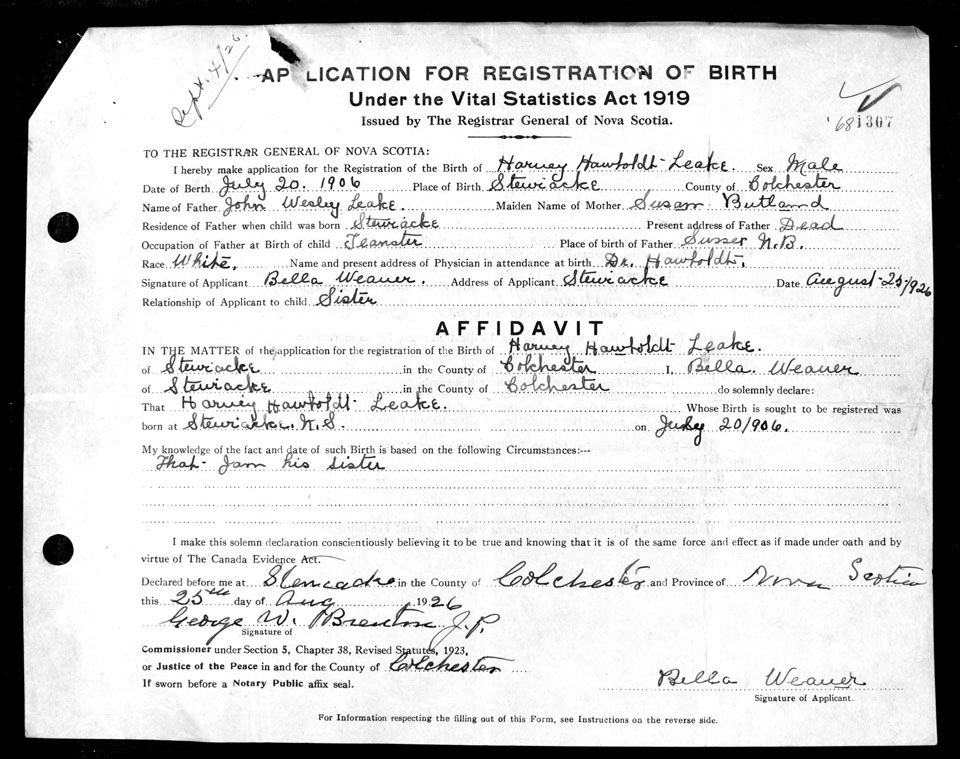 Sept. 4/26.
APPLICATION FOR REGISTRATION OF BIRTH
Under the Vital Statistics Act 1919
Issued by The Registrar General of Nova Scotia.
'681307
TO THE REGISTRAR GENERAL OF NOVA SCOTIA:
I hereby make application for the Registration of the Birth of Harvey Hawboldt Leake. Sex Male
Date of Berth July 20. 1906 Place of Birth Stewiacke County of Colchester
Name of Father John Wesley Leake. Maiden Name of Mother Susam Butland
Residence of Father when child was born Stewiacke Present address of Father Dead
Occupation of Father at Birth of child Teamster Place of birth of Father Sussex N.B.
Race White. Name and present address of Physician in attendance at birth Dr. Hawboldt.
Signature of Applicant Bella Weaver. Address of Applicant Stewiacke Date August-25/1926
Relationship of Applicant to child Sister
AFFIDAVIT
IN THE MATTER of the application for the registration of the Birth of Harvey Hawboldt Leake.
of Stewiacke in the County of Colchester I, Bella. Weaver
of Stewiacke in the County of Colchester do solemnly declare:
That Harvey Hawboldt Leake. Whose Birth is sought to be registered was
born at Stewiacke. N.S. on July 20/906.
My knowledge of the fact and date of such Birth is based on the following Circumstances:--
That I am his sister
I make this solemn declaration conscientiously believing it to be true and knowing that it is of the same force and effect as if made under oath and by
virtue of The Canada Evidence Act.
Declared before me at Stewiacke in the County of Colchester and Province of Nova Scotia
this 25th day of Aug 1926
George W. Brenton J.P.
Signature of
Commissioner under Section 5, Chapter 38, Revised Statutes, 1923,
or Justice of the Peace in and for the County of Colchester
If sworn before a Notary Public affix seal.
Bella Weaver
Signature of Applicant.
For Information respecting the filling out of this Form, see Instructions on the reverse side.